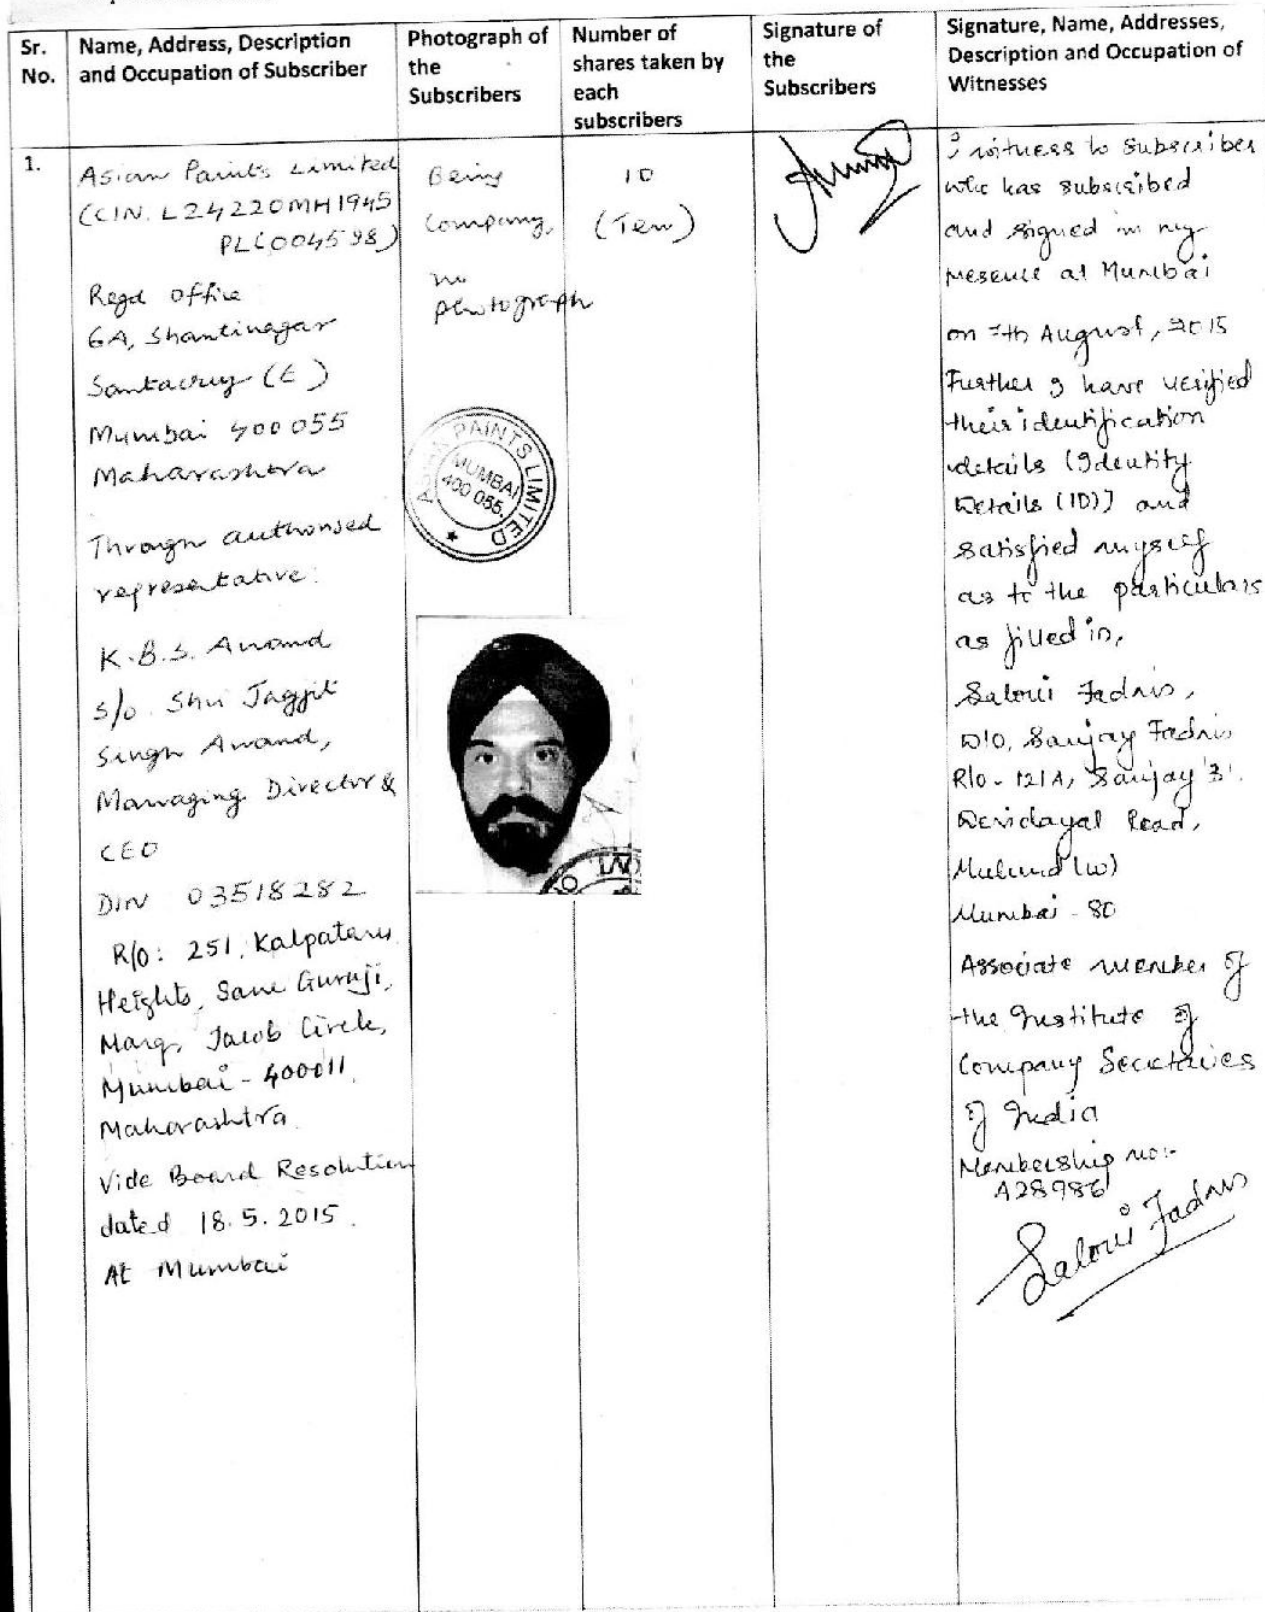 Sr.
No.
Name, Address, Description
and Occupation of Subscriber
Photograph of
the
Subscribers
Number of
shares taken by
each
subscribers
Signature of
the
Subscribers
Signature, Name, Addresses,
Description and Occupation of
Witnesses
1.
Asian Paints Limited
(CIN. L24220MH1945
PLC004598)
Regd office
6A, Shantinagar
Santacruz (E)
Mumbai 400055
Maharashtra
Through authorised
representative:
K.B.S. Anand
S/o. Shri Jagjit
Singh Anand,
Managing Director &
CEO
DIN 03518282
R/o: 251, Kalpataru
Heights, Sane Guruji,
Marg, Jacob Circle,
Mumbai - 400011,
Maharashtra
Vide Board Resolution
dated 18.5.2015.
At Mumbai
Being
Company,
no
photograph
ASIAN PAINTS LIMITED
MUMBAI
400 055.
10
(Ten)
I witness to subscriber
who has subscribed
and signed in my
presence at Mumbai
on 7th August, 2015
Further I have verified
their identification
details (Identity
Details (ID)) and
satisfied myself
as to the particulars
as filled in,
Saloni Fadnis,
D/O, Sanjay Fadnis
R/o - 121A, Sanjay '3'.
Devidayal Road,
Mulund (W)
Mumbai - 80
Associate member of
the Institute of
Company Secretaries
of India
Membership no:-
A28986
Saloni Fadnis